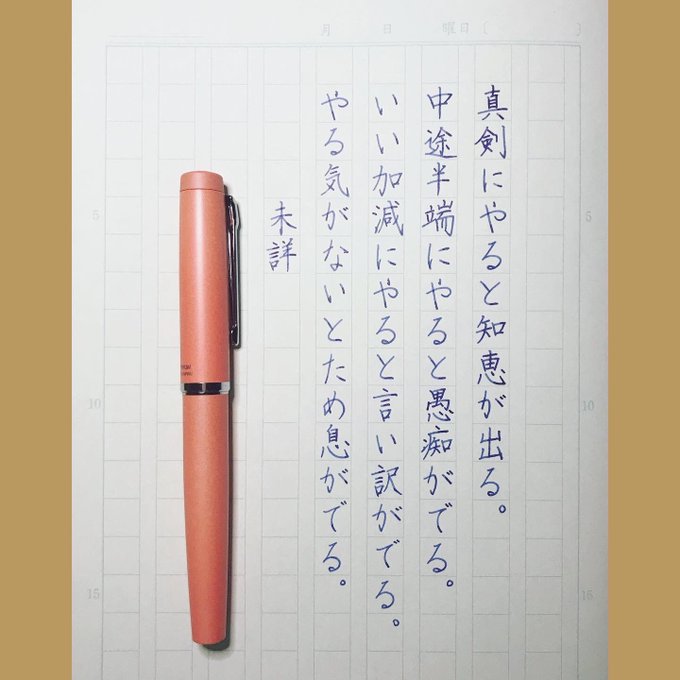 月 日 曜日〔 〕
真剣にやると知恵が出る。
中途半端にやると愚痴がでる。
いい加減にやると言い訳がでる。
やる気がないとため息がでる。
未詳
5
10
15
5
10
15